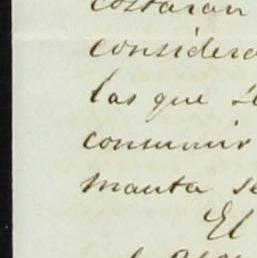 costarán
considera
las que se
consumir
manta se
El